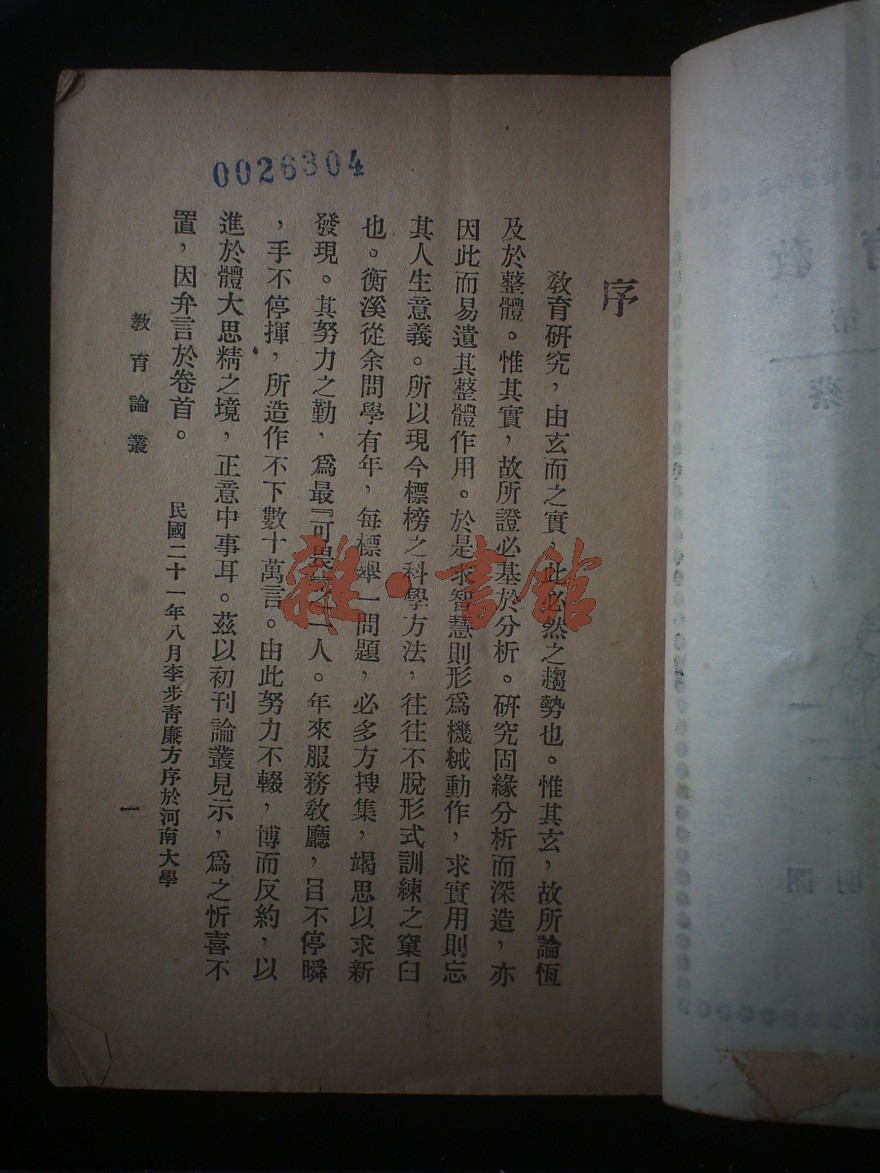 0026304
序
教育研究，由玄而之實，此必然之趨勢也。惟其玄，故所論恆
及於整體。惟其實，故所證必基於分析。研究固緣分析而深造，亦
因此而易遺其整體作用。於是求智慧則形爲機械動作，求實用則忘
其人生意義。所以現今標榜之科學方法，往往不脫形式訓練之窠臼
也。衡溪從余問學有年，每標舉一問題，必多方搜集，竭思以求新
發現。其努力之勤，爲最『可畏』之一人。年來服務教廳，目不停瞬
，手不停揮，所造作不下數十萬言。由此努力不輟，博而反約，以
進於體大思精之境，正意中事耳。茲以初刊論叢見示，爲之忻喜不
置，因弁言於卷首。
民國二十一年八月李步青廉方序於河南大學
教育論叢
一
雜·書館